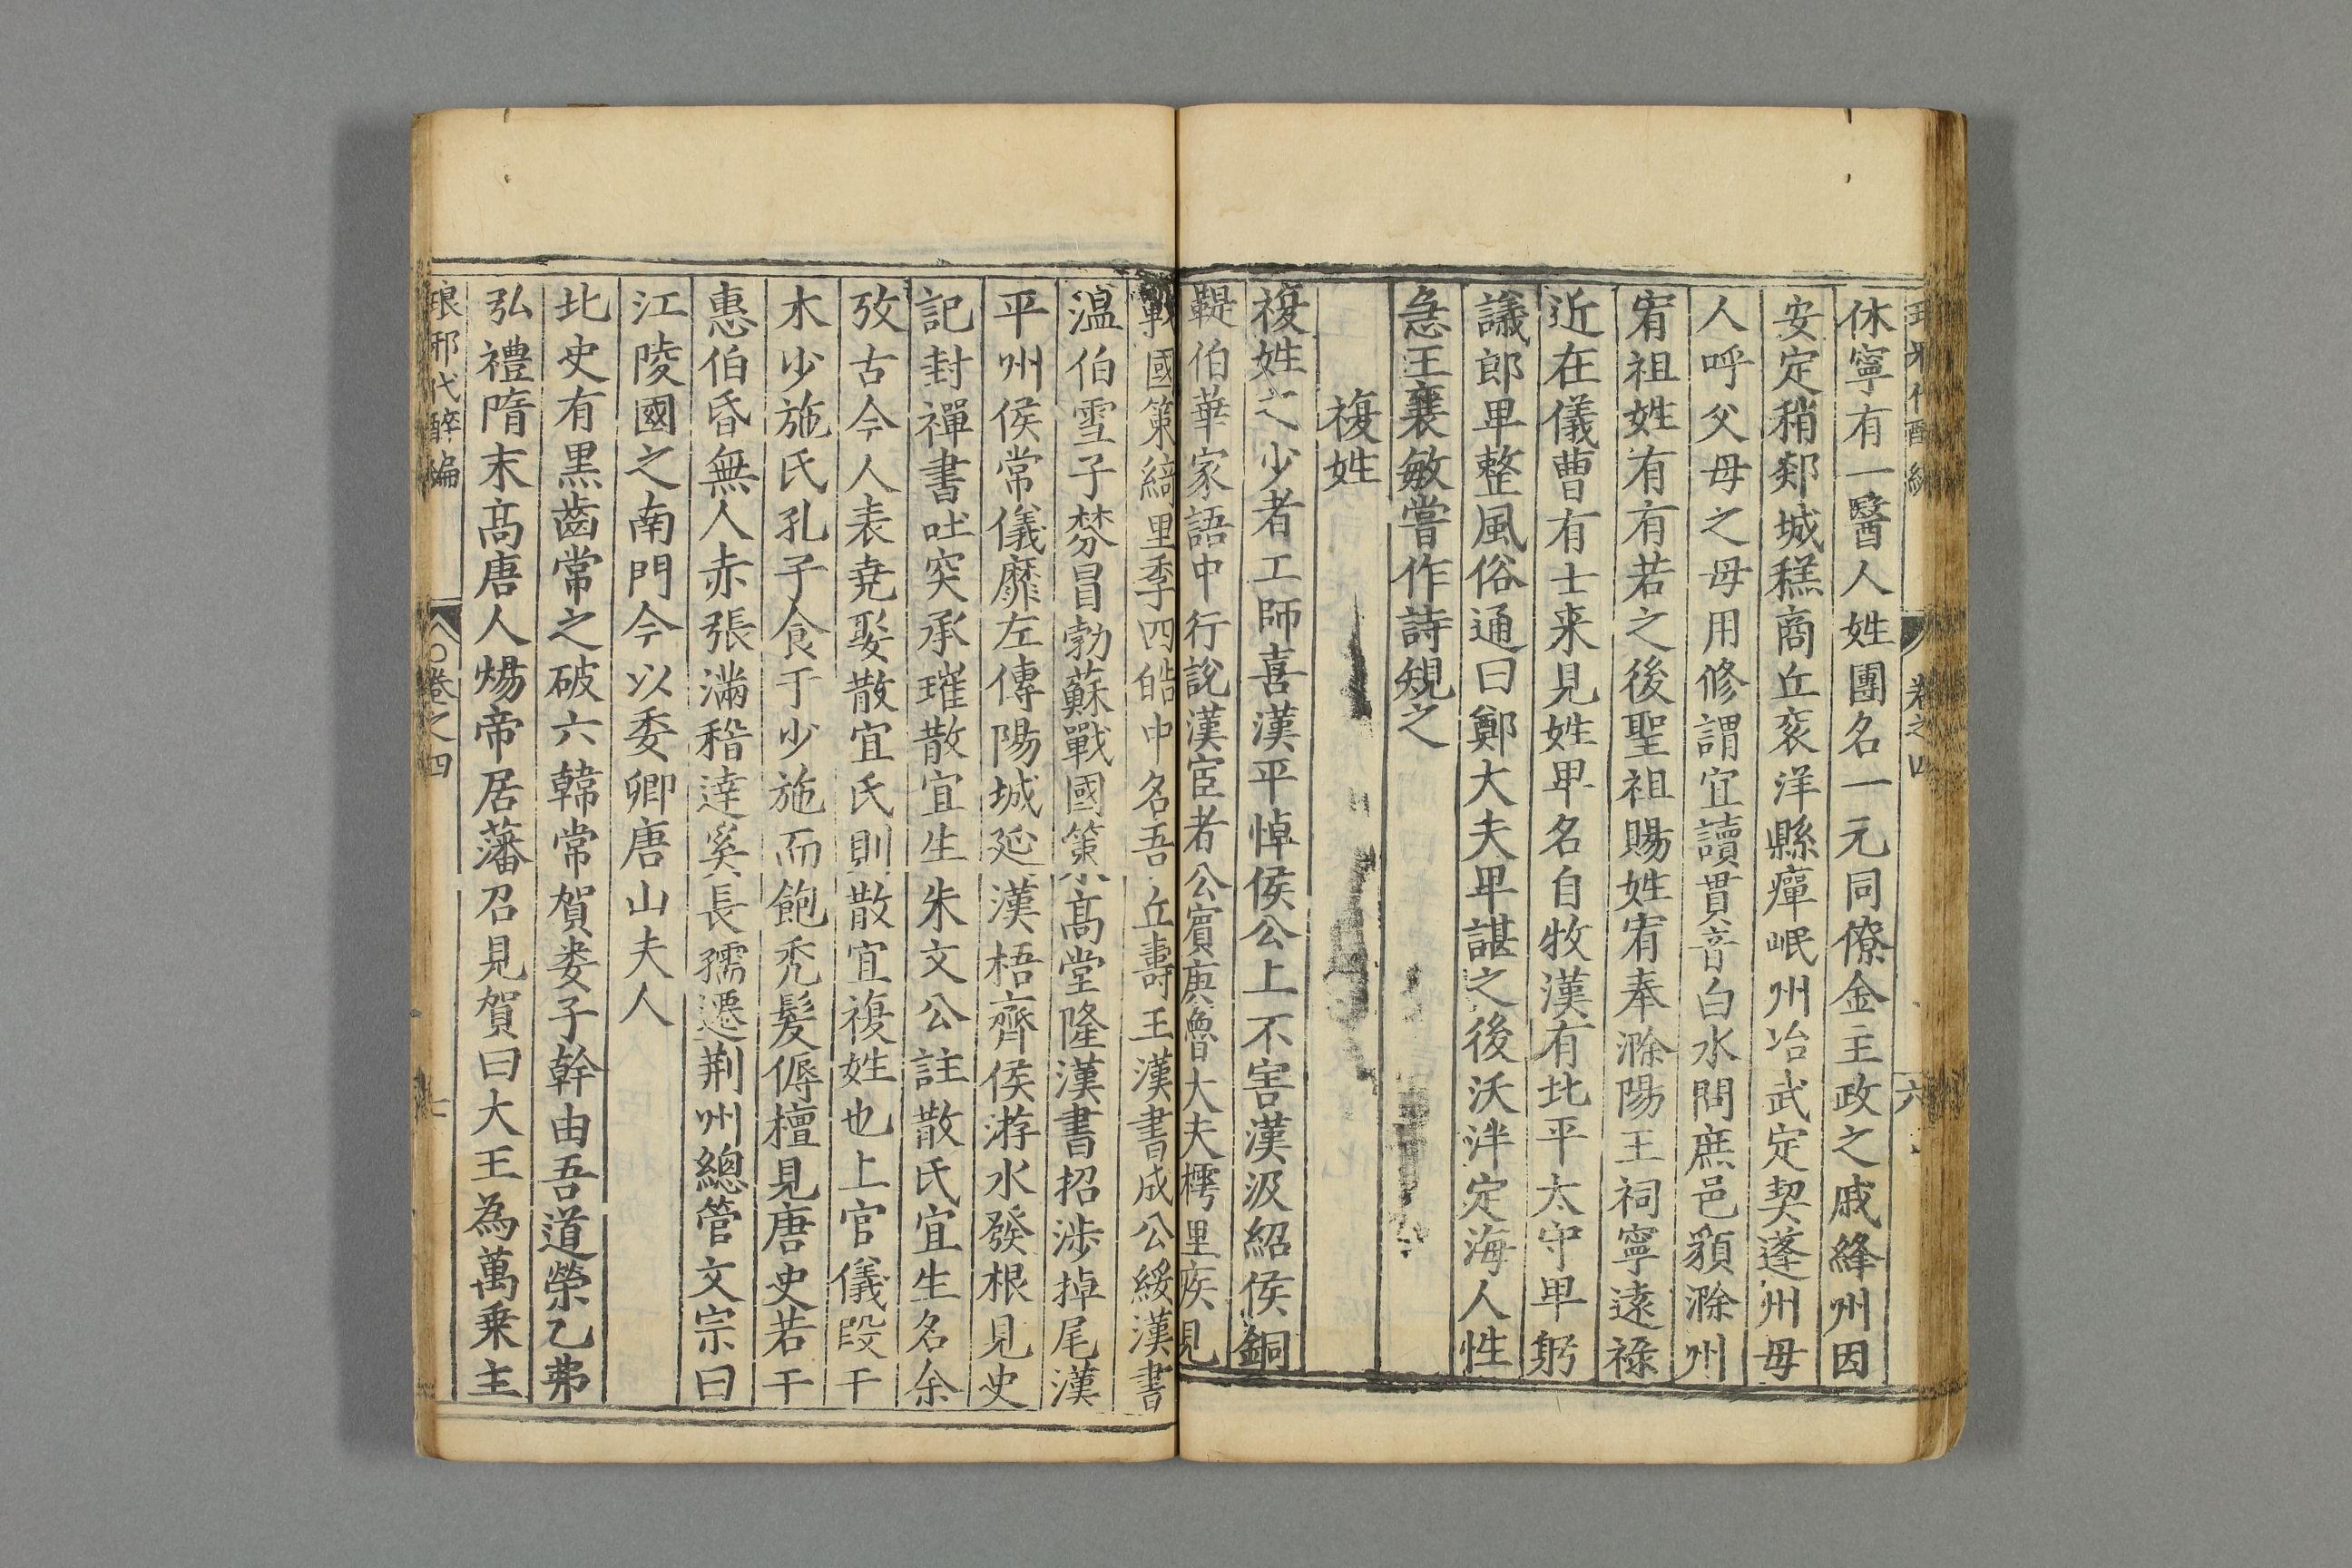 休寧有一醫人姓團名一元同僚金主政之戚絳州因
安定稍郯城糕商丘衮洋縣瘴岷州冶武定契蓬州毋
人呼父母之母用修謂宜讀貫音白水問庶邑貌滁州
宥祖姓有有若之後聖祖賜姓宥奉滁陽王祠寧遠祿
近在儀曹有士来見姓卑名自牧漢有北平太守卑躬
議郎卑整風俗通曰鄭大夫卑諶之後沃泮定海人性
急王襄敏嘗作詩䂓之
複姓
複姓之少者工師喜漢平悼侯公上不害漢汲紹侯銅
鞮伯華家語中行說漢宦者公賓庚魯大夫樗里疾見
戰國策綺里季四皓中名吾丘壽王漢書成公綏漢書
温伯雪子棼冒勃蘇戰國策高堂隆漢書招涉掉尾漢
平州侯常儀靡左傳陽城延漢梧齊侯游水發根見史
記封禪書吐突承璀散宜生朱文公註散氏宜生名余
攷古今人表堯娶散宜氏則散宜複姓也上官儀段干
木少施氏孔子食于少施而飽禿髮傉檀見唐史若干
惠伯昏無人赤張滿稽達奚長孺遷荆州總管文宗曰
江陵國之南門今以委卿唐山夫人
北史有黑齒常之破六韓常賀婁子幹由吾道榮乙弗
弘禮隋末高唐人煬帝居藩召見賀曰大王為萬乗主
琅邪代醉編
卷之四